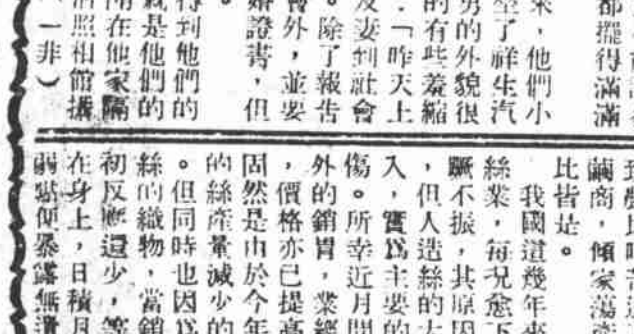 都擺得滿滿
來，他們小
了祥生汽
男的外貌很
的有些羞縮
：「昨天上
及妻到社會
。除了報告
會外，並要
婚證書，但
。
得到他們的
就是他們的
在他家隔
照相館攝
一非）
繭商，傾家蕩
比皆是。
我國這幾年來
絲業，每況愈下
蹶不振，其原因
，但人造絲的大
入，實爲主要的
傷。所幸近月間
外的銷胃，業經
，價格亦已提高
固然是由於今年
的絲產量減少的
。但同時也因爲
絲的織物，當銷
初反應還少，等
在身上，日積月
弱點便暴露無遺